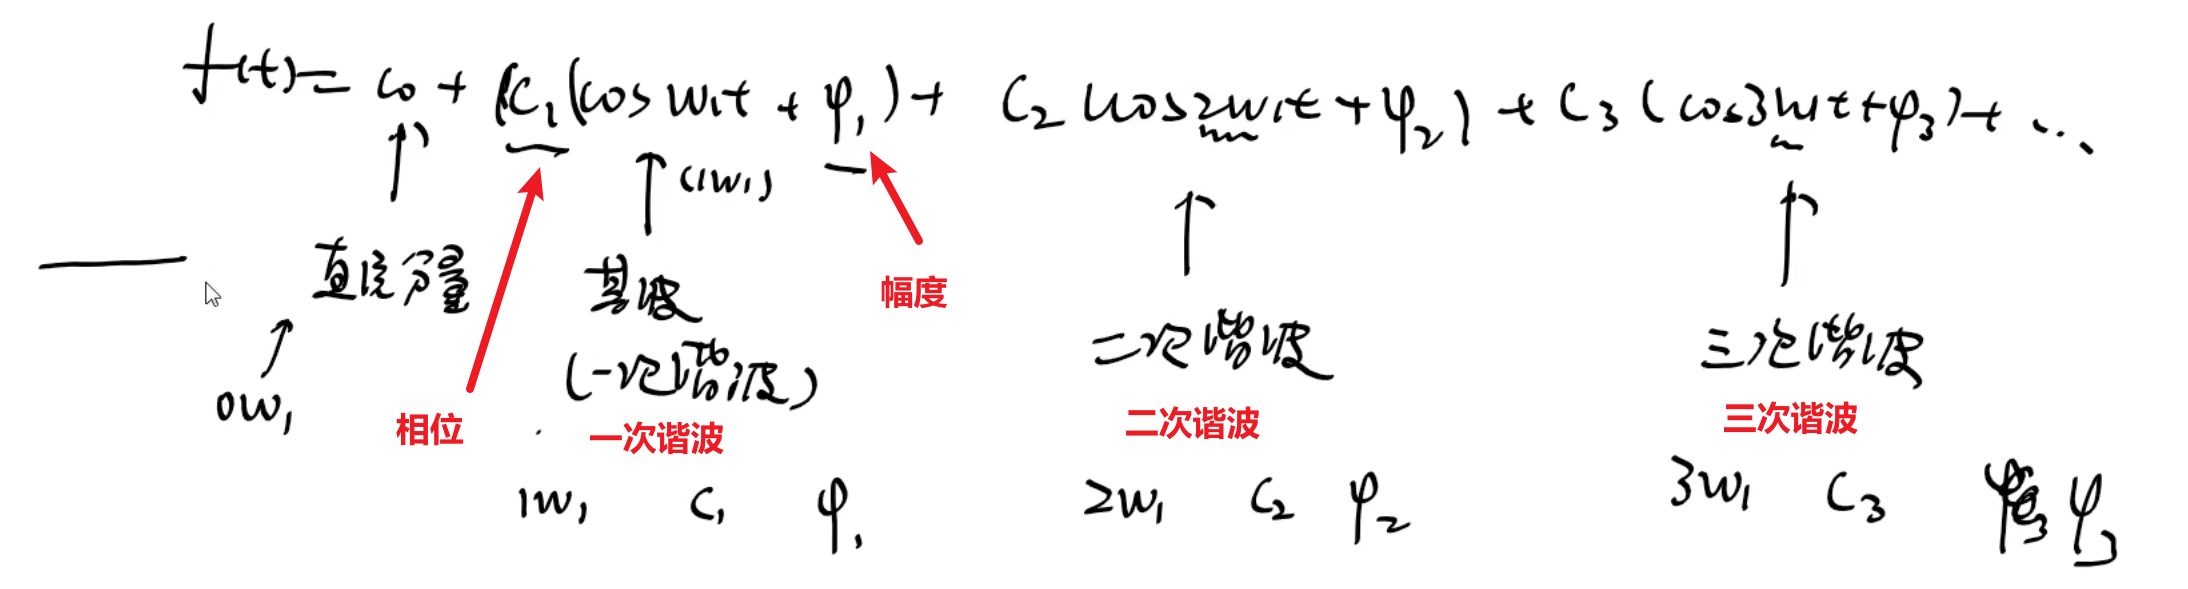 f(t) = c₀ + (C₁(cos w₁t + φ₁) + C₂(cos2w₁t + φ₂) + C₃(cos3w₁t + φ₃) + ...
(1w₁)
直流分量
基波
幅度
(一次谐波)
二次谐波
三次谐波
0w₁
相位
一次谐波
二次谐波
三次谐波
1w₁ C₁ φ₁
2w₁ C₂ φ₂
3w₁ C₃ φ₃